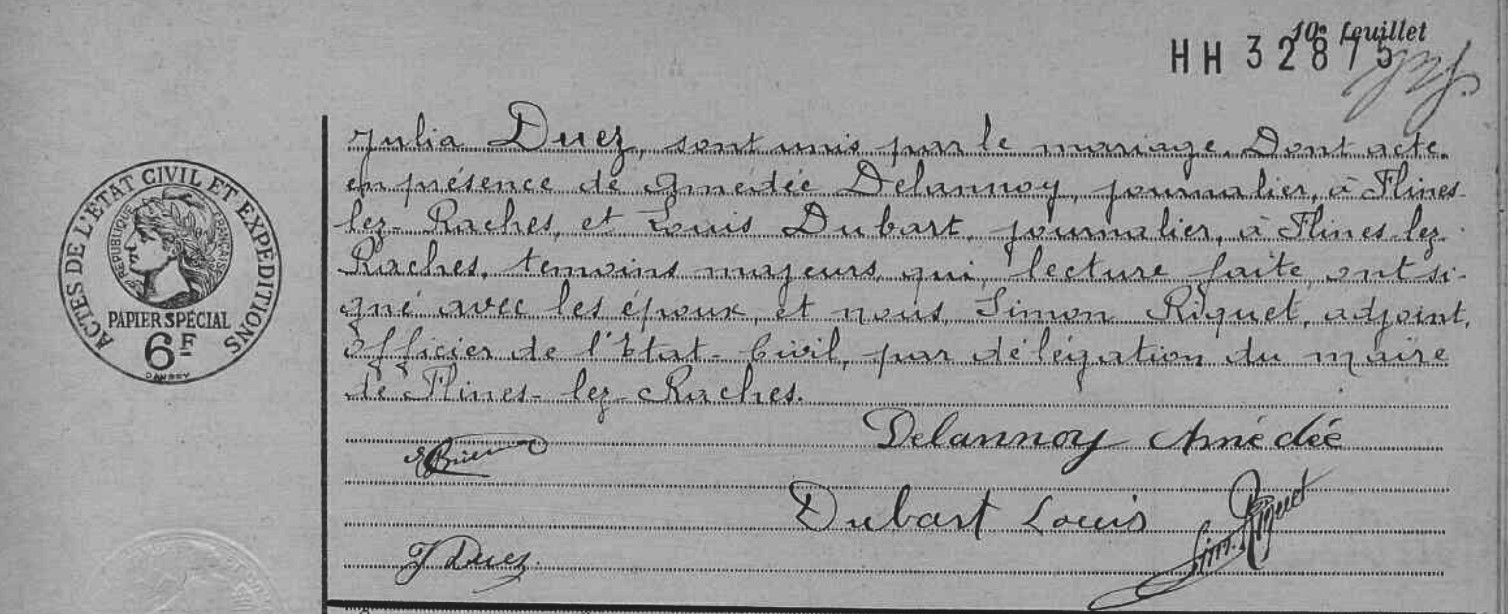 10e feuillet
HH 32875
Julia Duez, sont unis par le mariage. Dont acte.
en présence de Amédée Delannoy, journalier, à Flines-
lez-Raches, et Louis Dubart, journalier, à Flines-lez-
Raches, temoins majeurs, qui, lecture faite, ont si-
gné avec les époux, et nous, Simon Riquet, adjoint,
Officier de l'Etat-Civil, par délégation du maire
de Flines-lez-Raches.
ACTES DE L'ÉTAT CIVIL ET EXPÉDITIONS
RÉPUBLIQUE FRANÇAISE
PAPIER SPÉCIAL
6F
Delannoy Amédée
Dubart Louis
Sim. Riquet
J Duez.